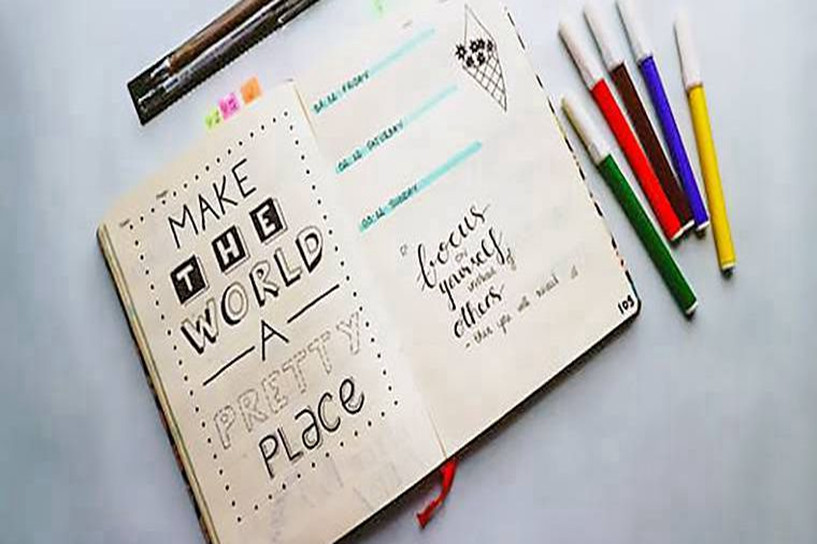 MAKE
THE
WORLD
A
PRETTY
PLACE
FRIDAY
SATURDAY
SUNDAY
focus
on
yourself
others
- then you will
103